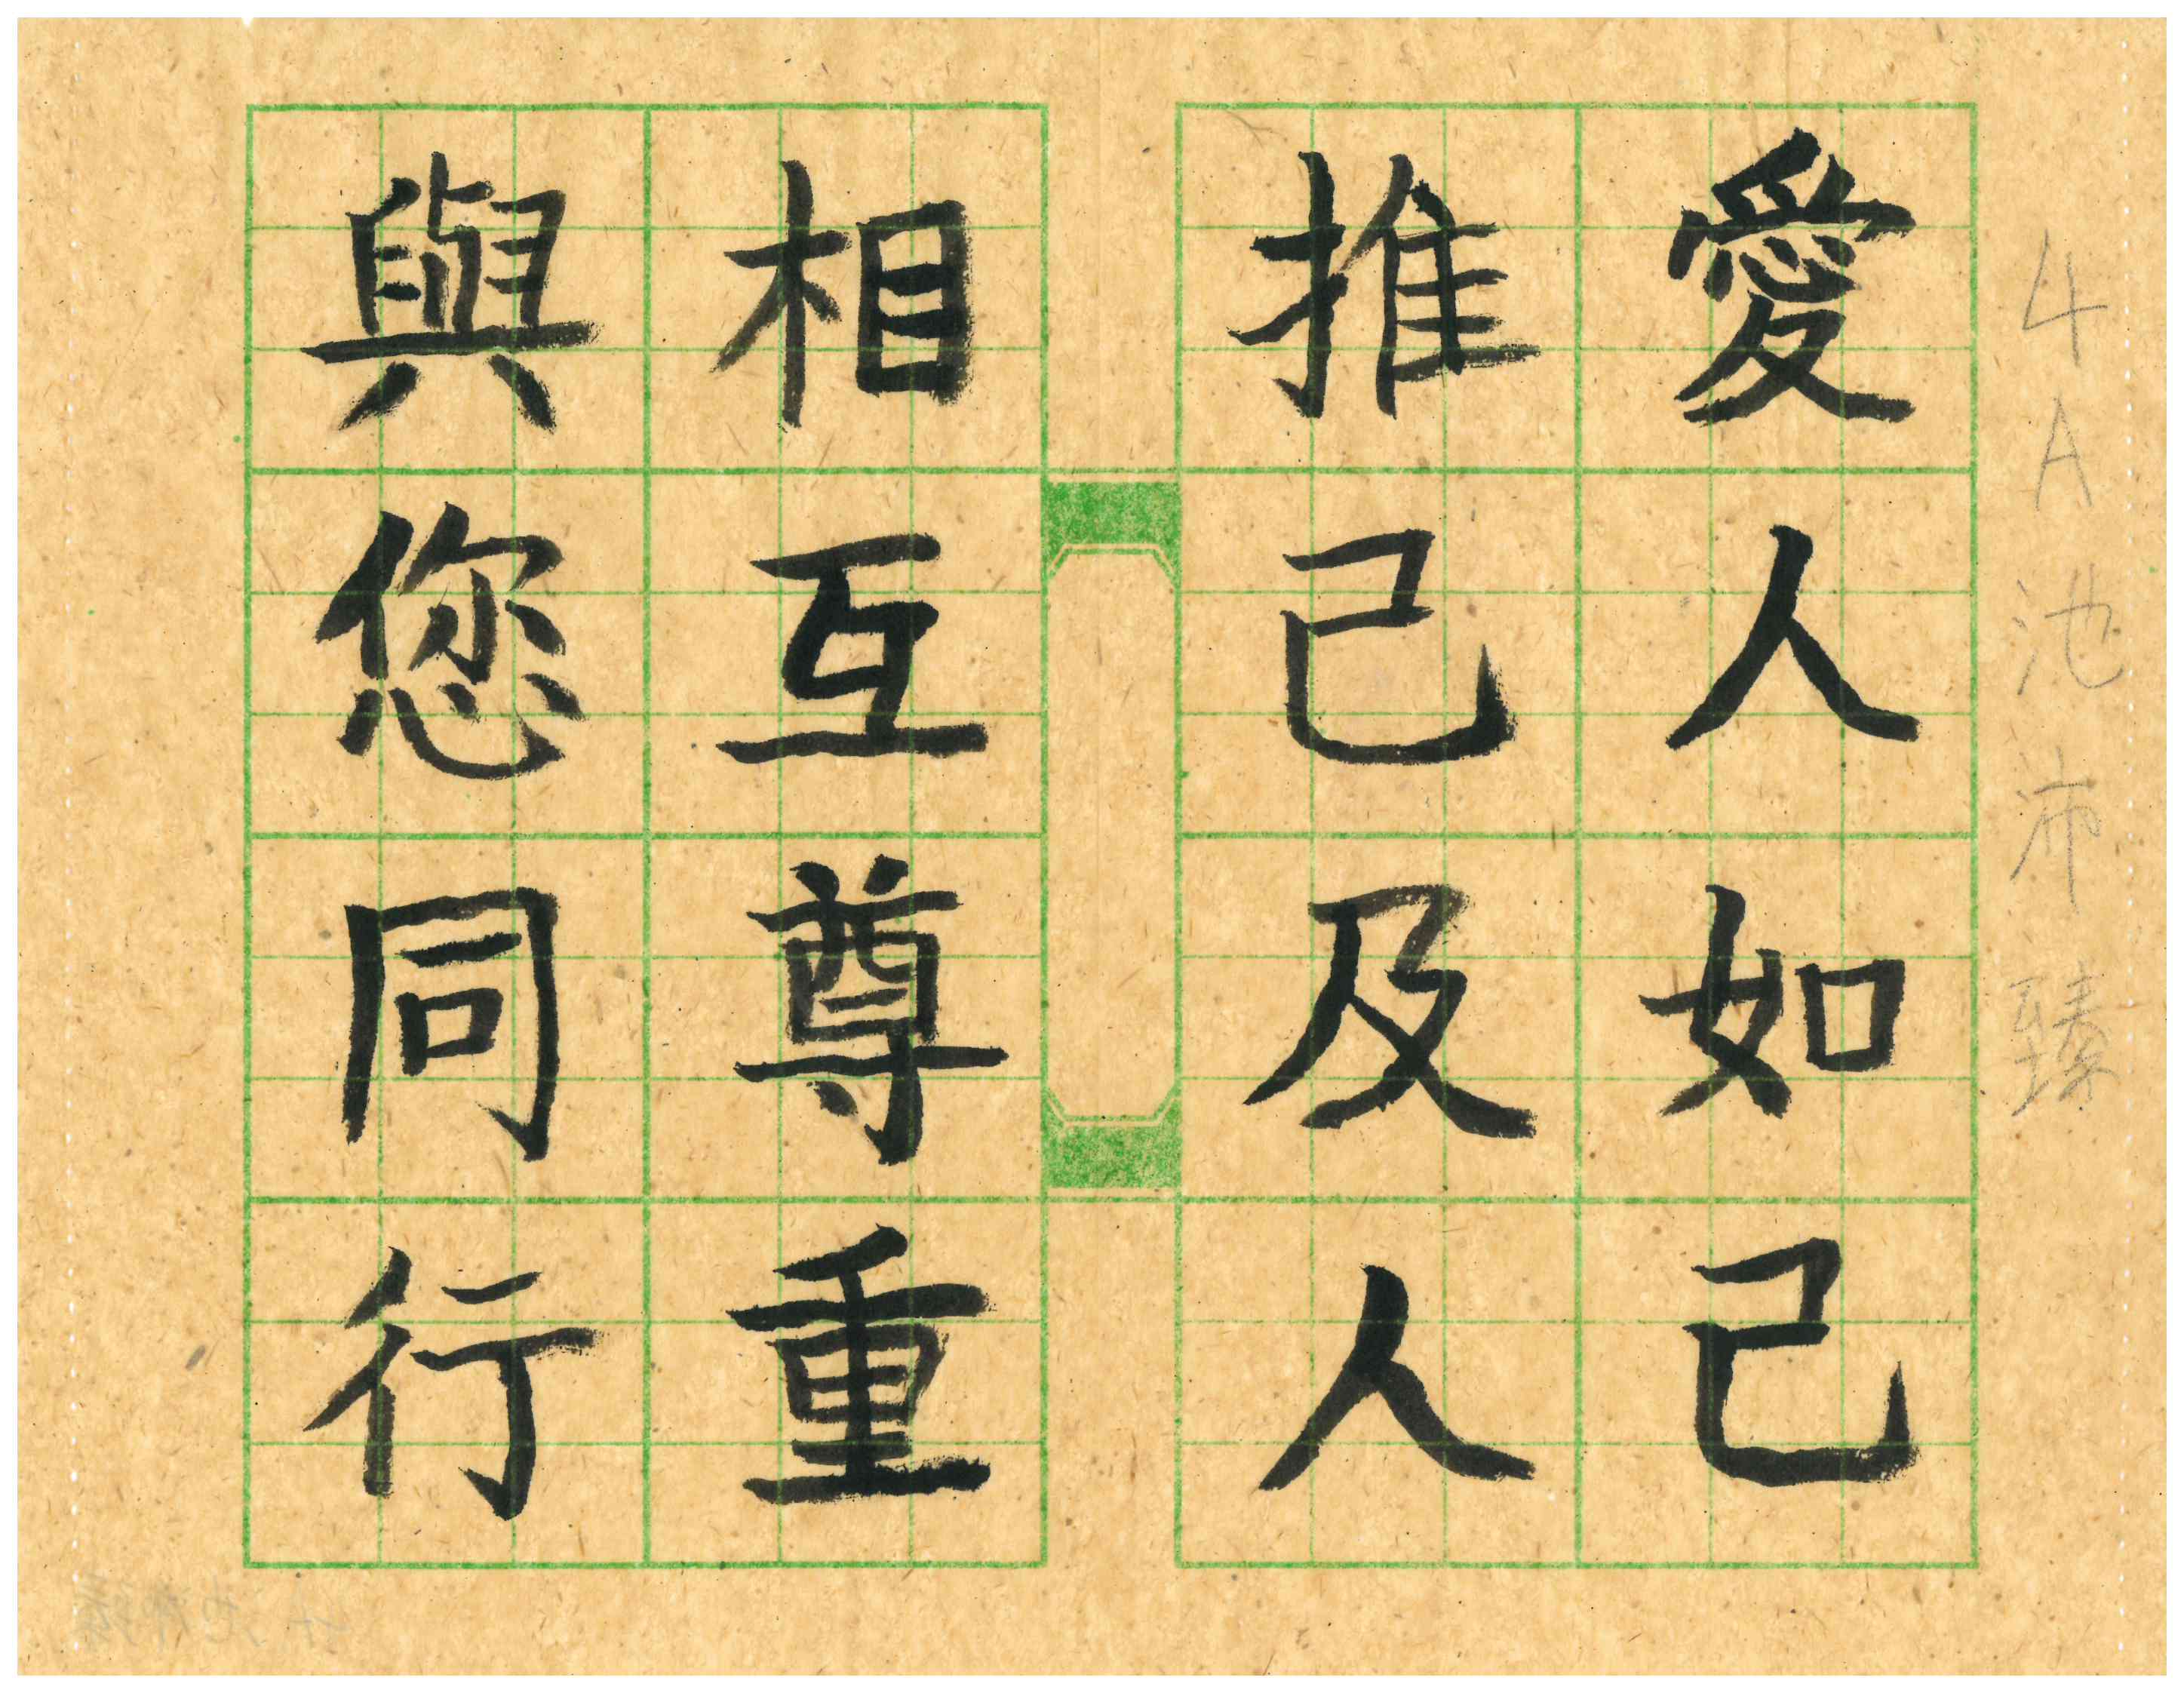 4A池沛臻
愛人如己
推己及人
相互尊重
與您同行